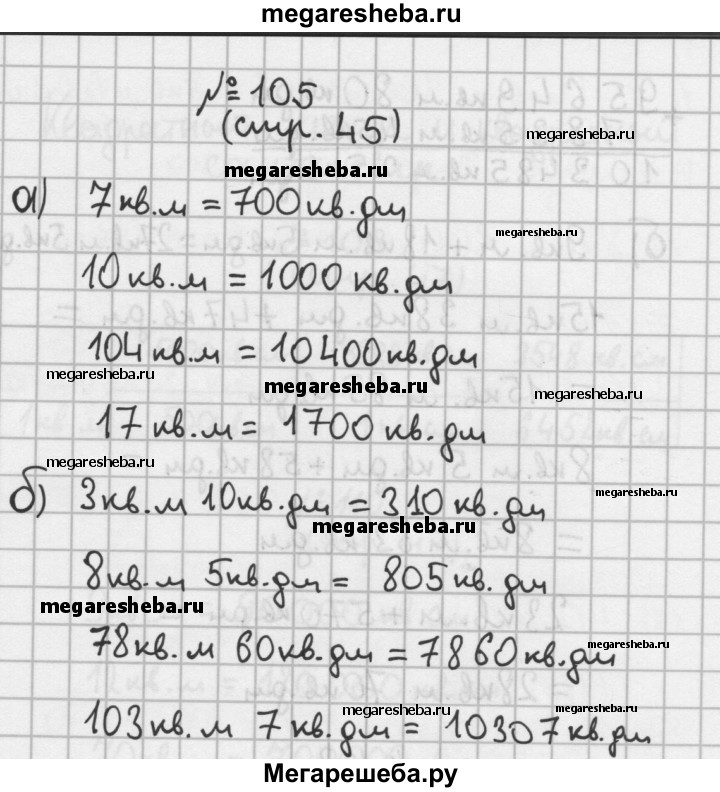 megaresheba.ru
№ 105
(стр. 45)
megaresheba.ru
megaresheba.ru
а) 7 кв.м = 700 кв.дм
megaresheba.ru
10 кв.м = 1000 кв.дм
104 кв.м = 10400 кв.дм
megaresheba.ru
megaresheba.ru
megaresheba.ru
17 кв.м = 1700 кв.дм
megaresheba.ru
б) 3 кв.м 10 кв.дм = 310 кв.дм
megaresheba.ru
megaresheba.ru
8 кв.м 5 кв.дм = 805 кв.дм
megaresheba.ru
78 кв.м 60 кв.дм = 7860 кв.дм
megaresheba.ru
103 кв.м 7 кв.дм = 10307 кв.дм
megaresheba.ru
megaresheba.ru
Мегарешеба.ру